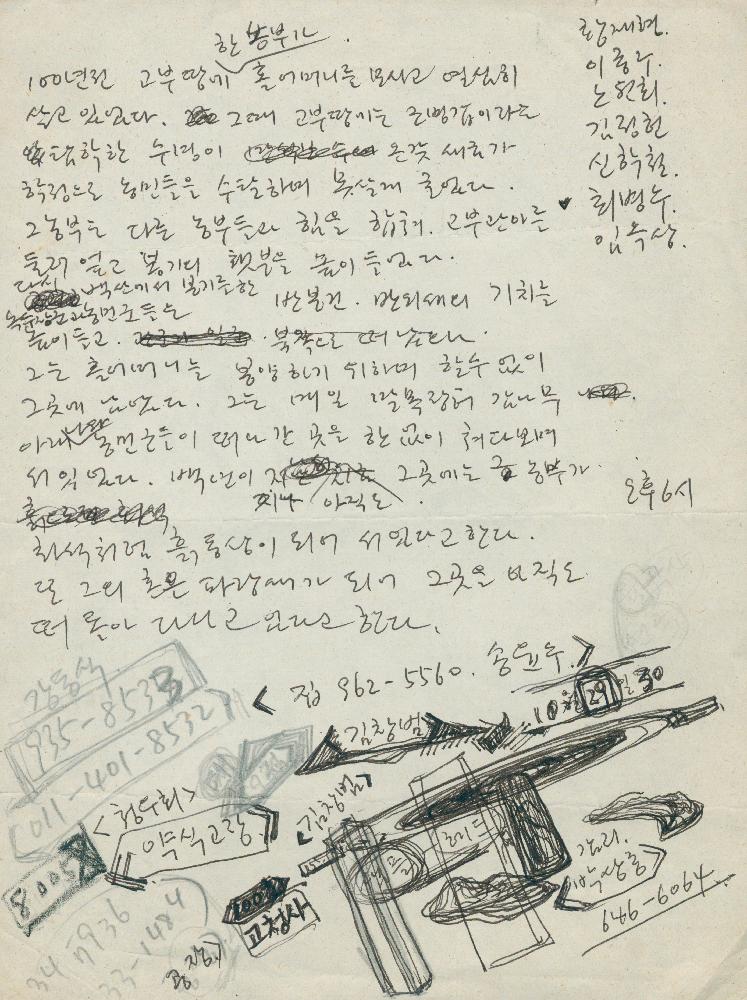 한 농부가
100년전 고부땅에 홀어머니를 모시고 열심히
살고 있었다. 그때 고부땅에는 조병갑이라는
탐학한 수령이 온갖 세금과
학정으로 농민들을 수탈하며 못살게 굴었다.
그 농부는 다른 농부들과 힘을 합해, 고부관아를
들러 엎고 봉기의 횃불을 높이 들었다.
다시 백산에서 봉기를 한
녹두장군과 농민군들은
반봉건. 반외세의 기치를
높이 들고. 북쪽으로 떠났다.
그는 홀어머니를 봉양하기 위하여 할수 없이
그곳에 남았다. 그는 매일 말목장터 감나무
아래 농민군들이 떠나간 곳을 한없이 쳐다보며
서 있었다. 백년이 지나 아직도 그곳에는 그 농부가
화석처럼 흙동상이 되어 서 있다고 한다.
또 그의 혼은 파랑새가 되어 그곳을 아직도
떠 돌아 다니고 있다고 한다.
황재현.
이종구.
노원희.
김정헌
신학철.
최병수.
임옥상.
오후6시
<집 962-5560. 송윤수.>
10월 29일 30
강동식
935-8533
011-401-8532
김창범
<김창범>
<청수회>
이두식교장
8005
1003
고청사
레드
감리
박상호
646-6064
7936
33-1484
34